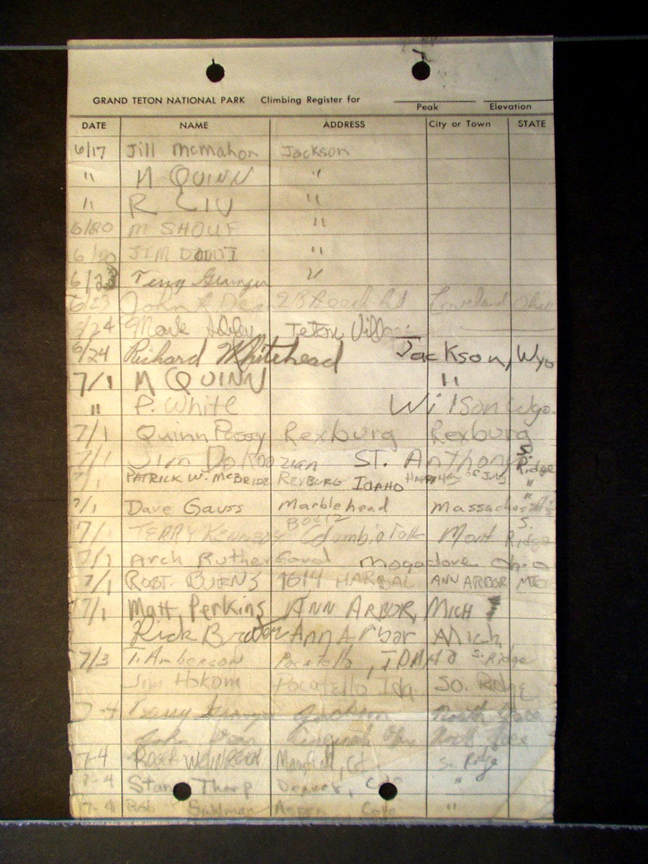 GRAND TETON NATIONAL PARK Climbing Register for
Peak Elevation
DATE NAME ADDRESS City or Town STATE
6/17 Jill McMahon Jackson
" M QUINN "
" R LIU "
6/20 M SHOUF "
6/20 JIM "
6/23 Terry "
6/23 John R Dean 28 Beech Rd Loveland Ohio
6/24 Mark Teton Village
6/24 Richard Whitehead Jackson, Wyo
7/1 M QUINN "
" P. White Wilson Wyo.
7/1 Quinn Rexburg Rexburg
7/1 Jim ST. Anthony S. Ridge
7/1 PATRICK W. McBRIDE REXBURG IDAHO "
7/1 Dave Gauss Marblehead Massachusetts
7/1 TERRY KENNEDY Columbia Falls Mont S. Ridge
7/1 Arch Rutherford Mogadore Ohio
7/1 ROBT. BURNS 1614 HARBAL ANN ARBOR MICH
7/1 Matt Perkins ANN ARBOR, MICH
Rick Ann Arbor Mich
7/3 T. Amberson Pocatello, IDAHO S. Ridge
Jim Hokom Pocatello Ida SO. RIDGE
7-4 Terry Jackson North Face
John North Face
7-4 So. Ridge
7-4 Stan Tharp Denver, Colo "
7-4 Aspen Colo "